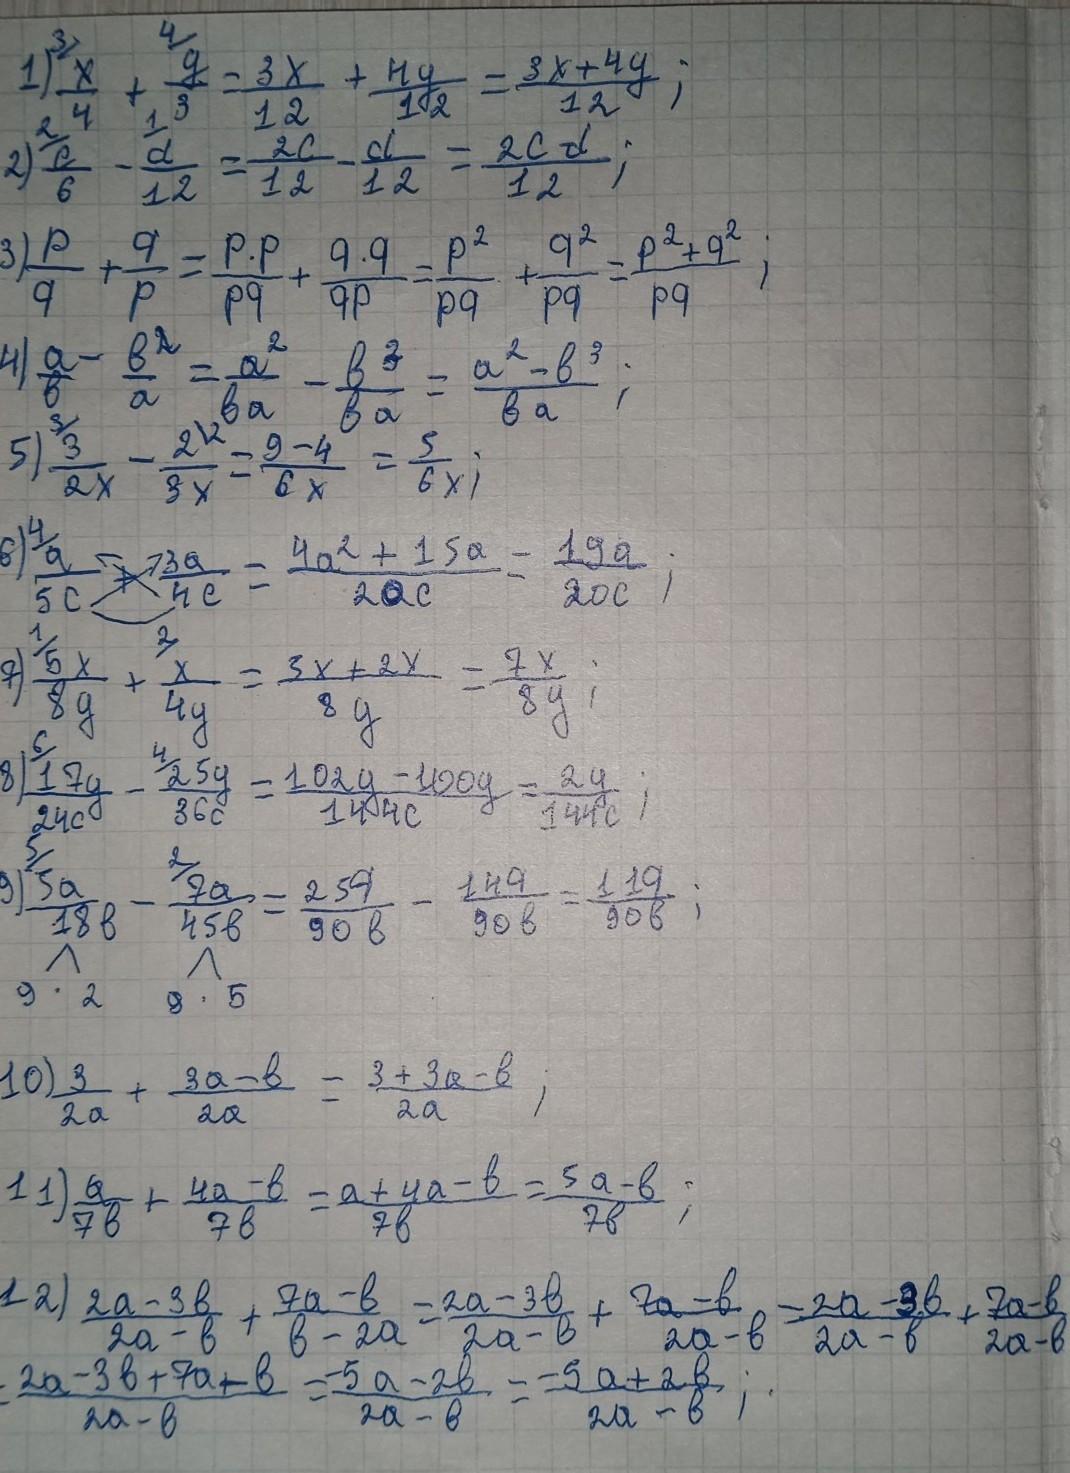 1) ³⁄x/4 + ⁴⁄y/3 = 3x/12 + 4y/12 = 3x+4y/12;
2) ²⁄c/6 - ¹⁄d/12 = 2c/12 - d/12 = 2c d/12;
3) p/q + q/p = p·p/pq + q·q/qp = p²/pq + q²/pq = p²+q²/pq;
4) a/b - b²/a = a²/ba - b³/ba = a²-b³/ba;
5) ³⁄3/2x - 2\²/3x = 9-4/6x = 5/6x;
6) ⁴⁄a/5c + 3a/4c = 4a²+15a/20c = 19a/20c;
7) ¹⁄5x/8y + ²⁄x/4y = 5x+2x/8y = 7x/8y;
8) ⁶⁄17y/24c - ⁴⁄25y/36c = 102y-100y/144c = 2y/144c;
9) ⁵⁄5a/18b - ²⁄7a/45b = 25a/90b - 14a/90b = 11a/90b;
9·2 9·5
10) 3/2a + 3a-b/2a = 3+3a-b/2a;
11) a/7b + 4a-b/7b = a+4a-b/7b = 5a-b/7b;
12) 2a-3b/2a-b + 7a-b/b-2a = 2a-3b/2a-b + 7a-b/2a-b = 2a-3b/2a-b + 7a-b/2a-b
= 2a-3b+7a+b/2a-b = -5a-2b/2a-b = -5a+2b/2a-b;